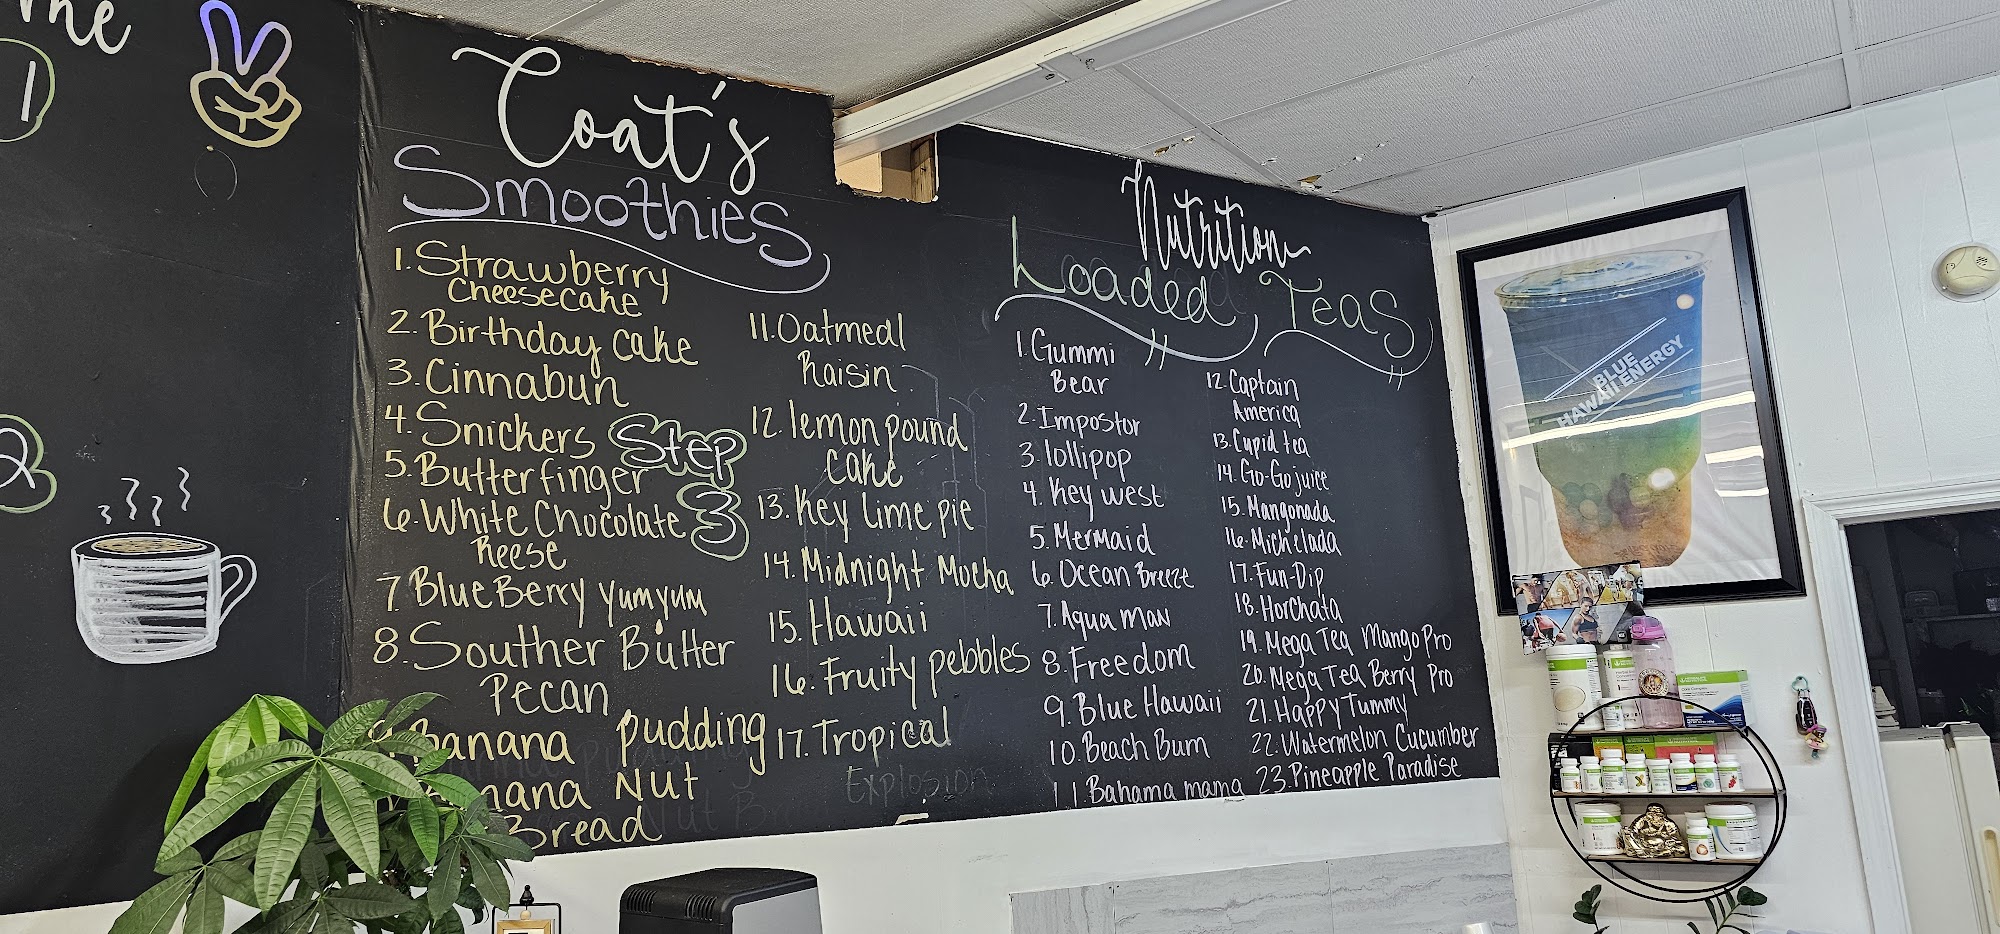 The
1
2
Coat's
Smoothies
1. Strawberry
Cheesecake
2. Birthday Cake
3. Cinnabun
4. Snickers
5. Butterfinger
6. White Chocolate
Reese
7. BlueBerry yumyum
8. Souther Butter
Pecan
9. Banana pudding
Banana Nut
Bread
Step
3
11. Oatmeal
Raisin
12. lemon pound
cake
13. Key Lime pie
14. Midnight Mocha
15. Hawaii
16. Fruity pebbles
17. Tropical
Explosion
Nutrition
Loaded Teas
1. Gummi
Bear
2. Impostor
3. lollipop
4. Key west
5. Mermaid
6. Ocean Breeze
7. Aqua Man
8. Freedom
9. Blue Hawaii
10. Beach Bum
11. Bahama mama
12. Captain
America
13. Cupid tea
14. Go-Go juice
15. Mangonada
16. Michelada
17. Fun-Dip
18. Horchata
19. Mega Tea Mango Pro
20. Mega Tea Berry Pro
21. Happy Tummy
22. Watermelon Cucumber
23. Pineapple Paradise
BLUE
HAWAII ENERGY